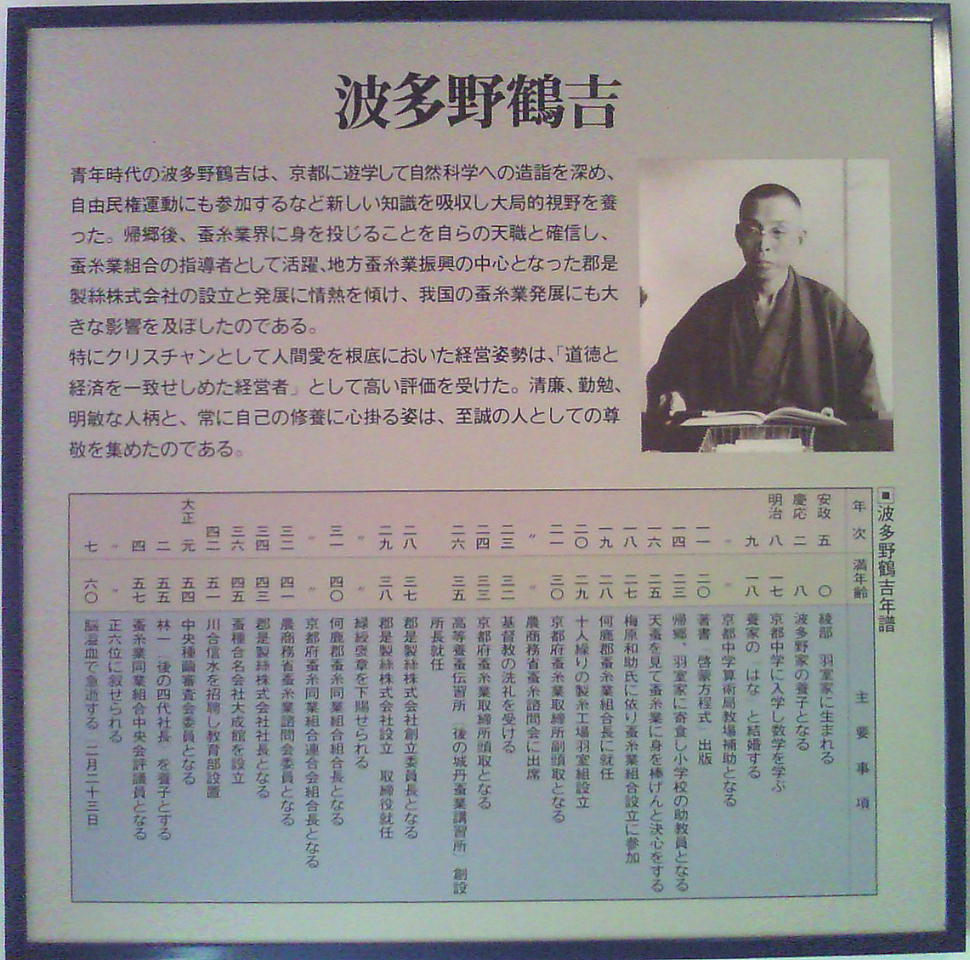 波多野鶴吉
青年時代の波多野鶴吉は、京都に遊学して自然科学への造詣を深め、
自由民権運動にも参加するなど新しい知識を吸収し大局的視野を養
った。帰郷後、蚕糸業界に身を投じることを自らの天職と確信し、
蚕糸業組合の指導者として活躍、地方蚕糸業振興の中心となった郡是
製絲株式会社の設立と発展に情熱を傾け、我国の蚕糸業発展にも大
きな影響を及ぼしたのである。
特にクリスチャンとして人間愛を根底においた経営姿勢は、「道徳と
経済を一致せしめた経営者」として高い評価を受けた。清廉、勤勉、
明敏な人柄と、常に自己の修養に心掛る姿は、至誠の人としての尊
敬を集めたのである。
■波多野鶴吉年譜
年次 満年齢 主要事項
安政 五 〇 綾部 羽室家に生まれる
慶応 二 八 波多野家の養子となる
明治 八 一七 京都中学に入学し数学を学ぶ
九 一八 養家の「はな」と結婚する
〃 〃 京都中学算術局教場補助となる
一一 二〇 著書「啓蒙方程式」出版
一四 二三 帰郷、羽室家に寄食し小学校の助教員となる
一六 二五 天蚕を見て蚕糸業に身を捧げんと決心をする
一八 二七 梅原和助氏に依り蚕糸業組合設立に参加
一九 二八 何鹿郡蚕糸業組合長に就任
二〇 二九 十人繰りの製糸工場羽室組設立
二一 三〇 京都府蚕糸業取締所副頭取となる
〃 〃 農商務省蚕糸諮問会に出席
二三 三二 基督教の洗礼を受ける
二四 三三 京都府蚕糸業取締所頭取となる
二六 三五 高等養蚕伝習所（後の城丹蚕業講習所）創設
所長就任
二八 三七 郡是製絲株式会社創立委員長となる
二九 三八 郡是製絲株式会社設立 取締役就任
〃 〃 緑綬褒章を下賜せられる
三一 四〇 何鹿郡蚕糸同業組合組合長となる
〃 〃 京都府蚕糸同業組合連合会組合長となる
三二 四一 農商務省蚕糸業諮問会委員となる
三四 四三 郡是製絲株式会社社長となる
三六 四五 蚕種合名会社大成館を設立
四二 五一 川合信水を招聘し教育部設置
大正 元 五四 中央種繭審査会委員となる
二 五五 林一（後の四代社長）を養子とする
四 五七 蚕糸業同業組合中央会評議員となる
〃 〃 正六位に叙せられる
七 六〇 脳溢血で急逝する（二月二十三日）